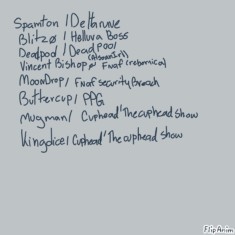 Spamton / Deltarune
Blitzø / Helluva Boss
Deadpool / Deadpool
Vincent Bishop / Fnaf
MoonDrop / Fnaf security Breach
Buttercup / PPG
Mugman / Cuphead "The cuphead show
Kingdice / Cuphead "The cuphead show
FlipAnim